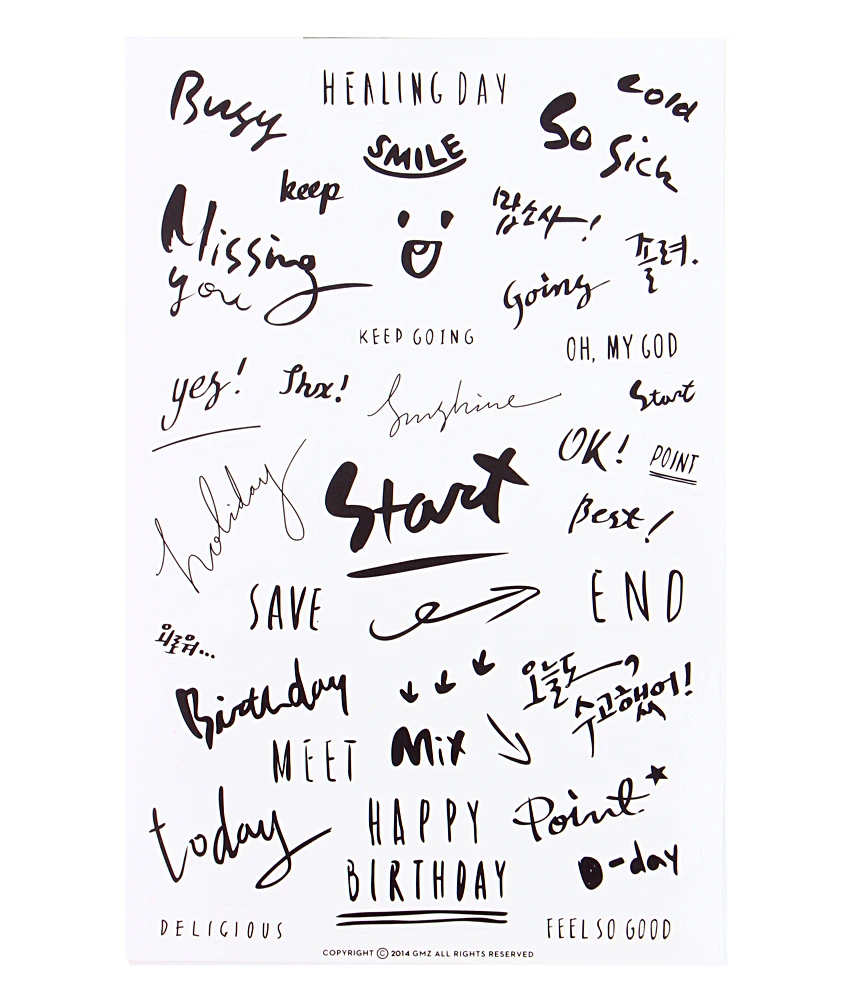 Busy
HEALING DAY
Cold
So Sick
SMILE
keep
맙소사!
Missing
you
졸려.
Going
KEEP GOING
OH, MY GOD
yes!
Thx!
Sunshine
Start
holiday
Start
OK!
POINT
Best!
SAVE
END
외로워...
Birthday
오늘도,
수고했어!
MEET
Mix
today
HAPPY
BIRTHDAY
Point
D-day
DELIGIOUS
FEEL SO GOOD
COPYRIGHT © 2014 GMZ ALL RIGHTS RESERVED